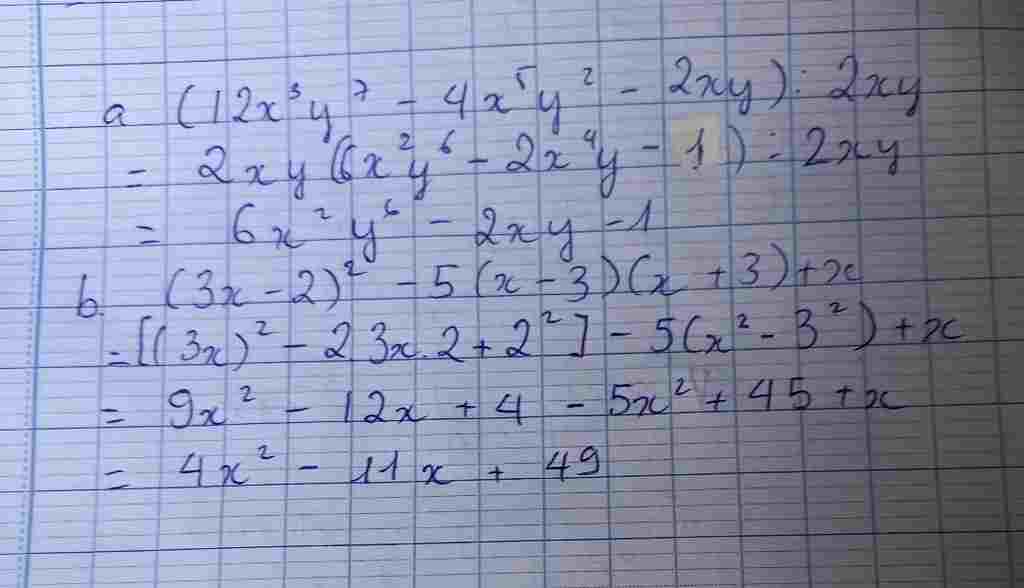 a (12x³y⁷ - 4x⁵y² - 2xy) : 2xy
= 2xy(6x²y⁶ - 2x⁴y - 1) : 2xy
= 6x²y⁶ - 2xy - 1
b. (3x - 2)² - 5(x - 3)(x + 3) + x
= [(3x)² - 2 3x.2 + 2²] - 5(x² - 3²) + x
= 9x² - 12x + 4 - 5x² + 45 + x
= 4x² - 11x + 49